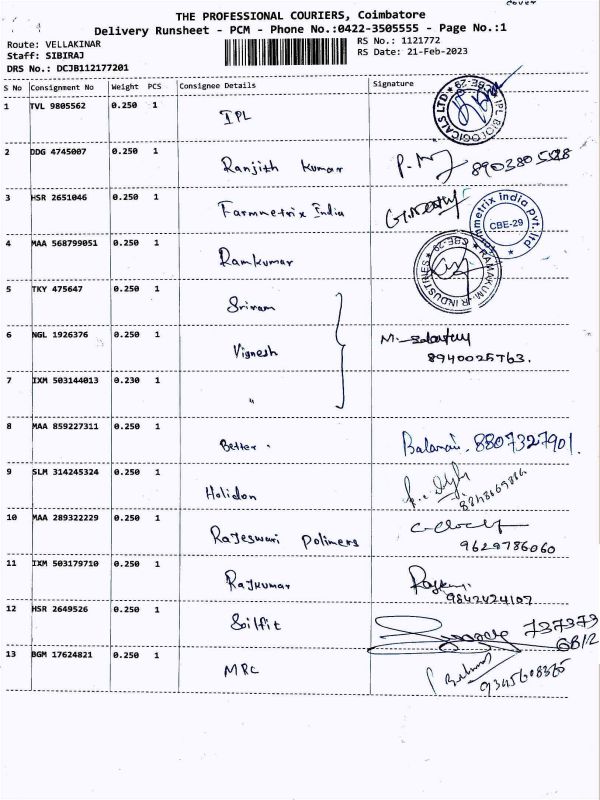 cover
THE PROFESSIONAL COURIERS, Coimbatore
Delivery Runsheet - PCM - Phone No.:0422-3505555 - Page No.:1
Route: VELLAKINAR
Staff: SIBIRAJ
DRS No.: DCJB112177201
RS No.: 1121772
RS Date: 21-Feb-2023
S No Consignment No Weight PCS Consignee Details Signature
1 TVL 9805562 0.250 1
IPL
IPL BIOLOGICALS LTD ★ CBE-29 ★
2 DDG 4745007 0.250 1
Ranjith Kumar
3 HSR 2651046 0.250 1
Farmmetrix India
metrix india pvt.ltd
CBE-29
4 MAA 568799051 0.250 1
Ramkumar
RAMAKUMR INDUSTRIES ★ CBE-29 ★
5 TKY 475647 0.250 1
Sriram
6 NGL 1926376 0.250 1
Vignesh
8940025763.
7 IXM 503144013 0.230 1
"
8 MAA 859227311 0.250 1
Better. 8807327901.
9 SLM 314245324 0.250 1
Holidon
10 MAA 289322229 0.250 1
Rajeswari Polimers
9629786060
11 IXM 503179710 0.250 1
Rajkumar
9842424107
12 HSR 2649526 0.250 1
Soilfit 737373
6812
13 BGM 17624821 0.250 1
MRC
9345608365